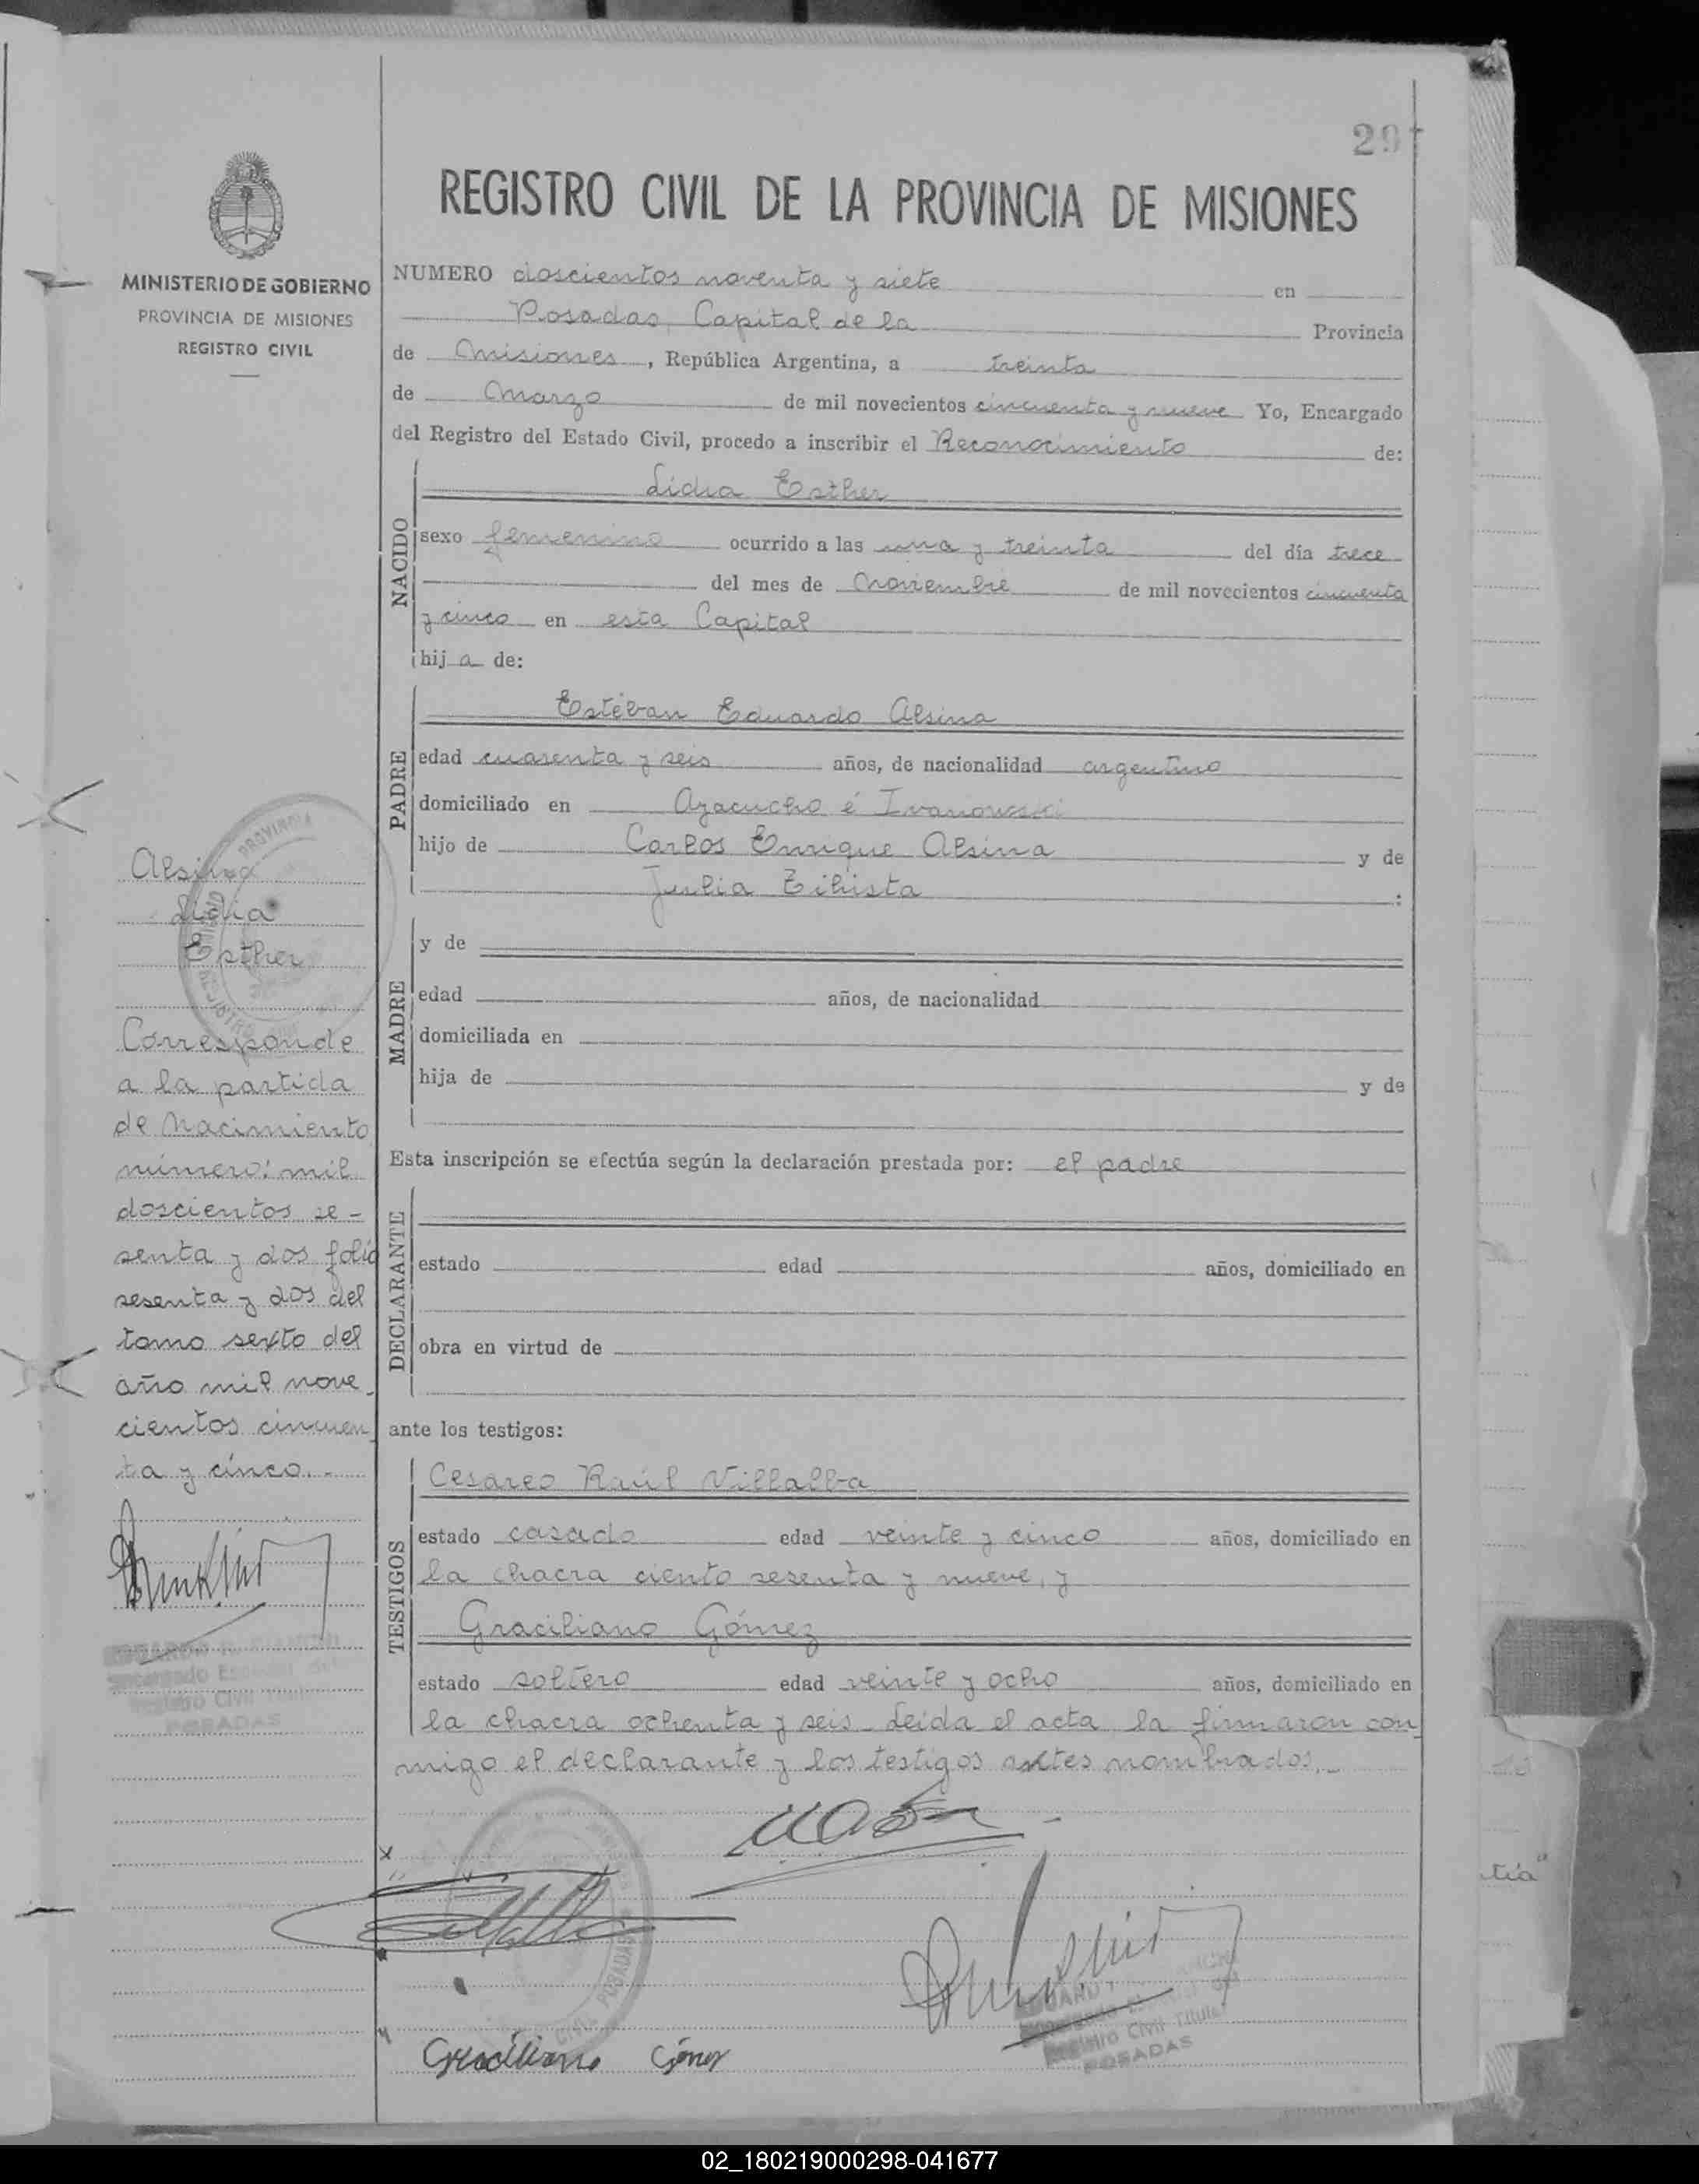 297
REGISTRO CIVIL DE LA PROVINCIA DE MISIONES
MINISTERIO DE GOBIERNO
PROVINCIA DE MISIONES
REGISTRO CIVIL
NUMERO doscientos noventa y siete en
Posadas, Capital de la Provincia
de Misiones, República Argentina, a treinta
de Marzo de mil novecientos cincuenta y nueve Yo, Encargado
del Registro del Estado Civil, procedo a inscribir el Reconocimiento de:
NACIDO
Lidia Esther
sexo femenino ocurrido a las una y treinta del día trece
del mes de Noviembre de mil novecientos cincuenta
y cinco en esta Capital
hija de:
PADRE
Estéban Eduardo Alsina
edad cuarenta y seis años, de nacionalidad argentino
domiciliado en Ayacucho é Ivanowski
hijo de Carlos Enrique Alsina y de
Julia :
MADRE
y de
edad años, de nacionalidad
domiciliada en
hija de y de
Esta inscripción se efectúa según la declaración prestada por: el padre
DECLARANTE
estado edad años, domiciliado en
obra en virtud de
ante los testigos:
TESTIGOS
Cesareo Raúl Villalba
estado casado edad veinte y cinco años, domiciliado en
la chacra ciento sesenta y nueve, y
Graciliano Gómez
estado soltero edad veinte y ocho años, domiciliado en
la chacra ochenta y seis. Leida el acta la firmaron con
migo el declarante y los testigos antes nombrados.-
Graciliano Gómez
Alsina
Lidia
Esther
Corresponde
a la partida
de Nacimiento
número: mil
doscientos se-
senta y dos folio
sesenta y dos del
tomo sexto del
año mil nove
cientos cincuen
ta y cinco.-
Registro Civil Titular
POSADAS
Registro Civil Titular
POSADAS
tía"
02_180219000298-041677